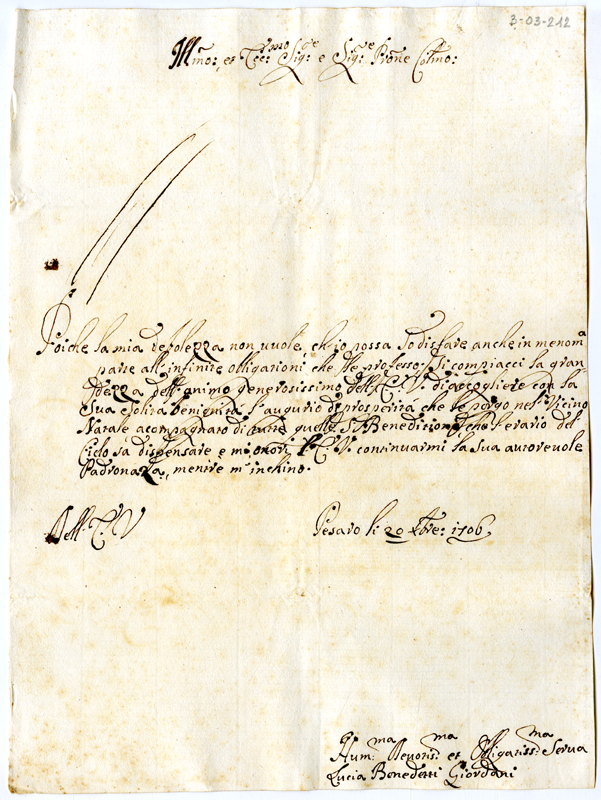 3-03-212
Ill.mo: et Ecc:mo Sig:re e Sig:re P'rone Col'mo:
Poiche la mia debolezza non uuole, ch'io possa sodisfare anche in menoma
parte all'infinite obligazioni che Le professo; Si compiacci la gran
dezza dell'animo Generosissimo dell'E. V. di accogliere con la
Sua esolita benignità l'augurio di prosperità che Le porgo nel Vicino
Natale acompagnato di tutte quelle S.te Benedicioni, che l'erario del
Cielo sa dispensare e m'onori l'E. V. continuarmi la sua autoreuole
Padronanza, mentre m'inchino.
Dell: E. V Pesaro li 20 Xbre: 1706
Hum:ma Deuotis:ma et Obligatiss:ma Serua
Lucia Benedetti Giordani